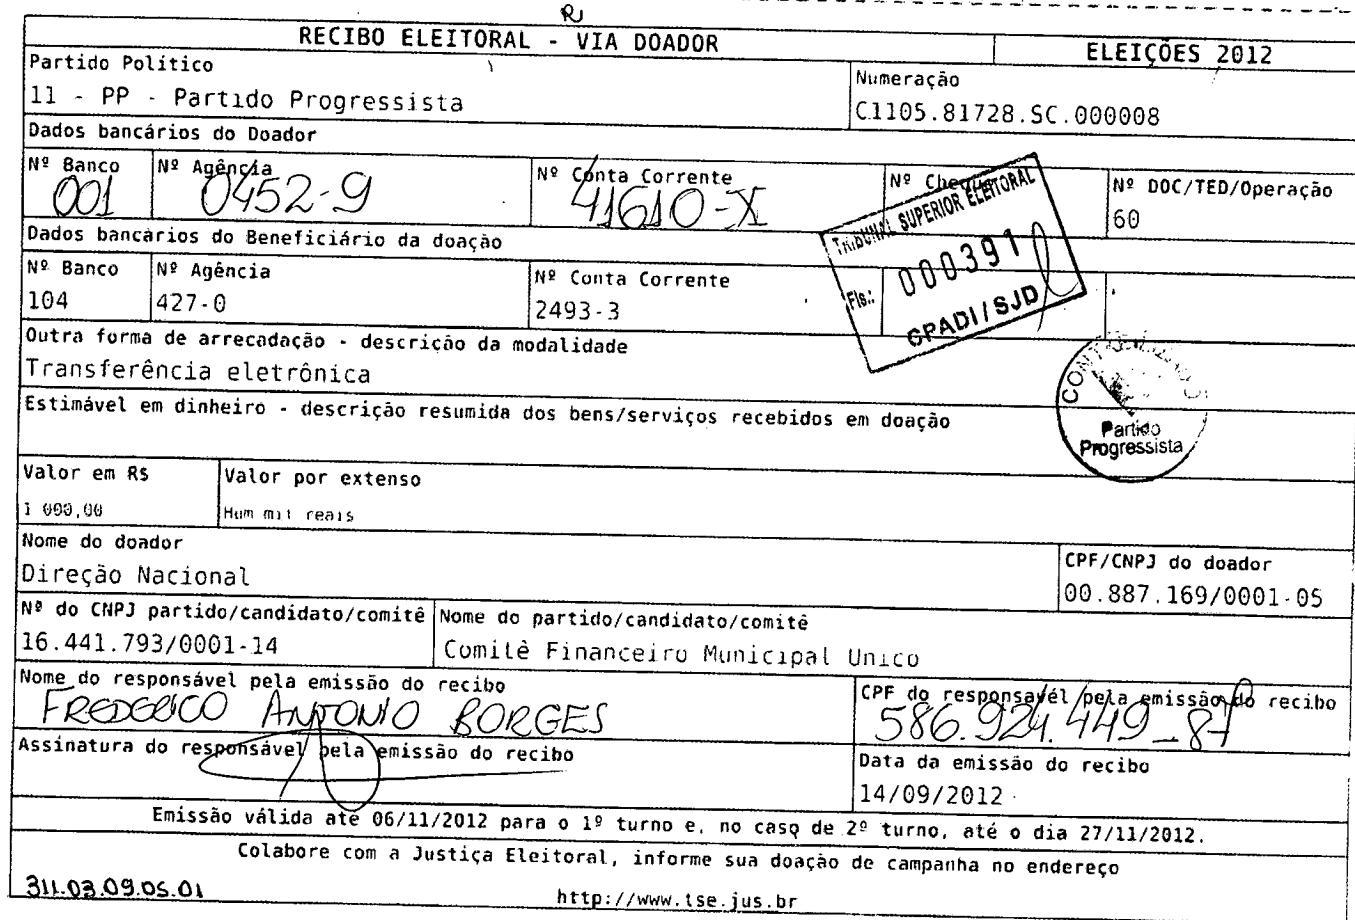 RECIBO ELEITORAL - VIA DOADOR
ELEIÇÕES 2012
Partido Político
11 - PP - Partido Progressista
Numeração
C1105.81728.SC.000008
Dados bancários do Doador
Nº Banco
001
Nº Agência
0452-9
Nº Conta Corrente
41610-X
Nº Cheque
Nº DOC/TED/Operação
60
TRIBUNAL SUPERIOR ELEITORAL
Fls.: 000391
CPADI/SJD
Dados bancários do Beneficiário da doação
Nº Banco
104
Nº Agência
427-0
Nº Conta Corrente
2493-3
Outra forma de arrecadação - descrição da modalidade
Transferência eletrônica
Partido
Progressista
Estimável em dinheiro - descrição resumida dos bens/serviços recebidos em doação
Valor em R$
1 000,00
Valor por extenso
Hum mil reais
Nome do doador
Direção Nacional
CPF/CNPJ do doador
00.887.169/0001-05
Nº do CNPJ partido/candidato/comitê
16.441.793/0001-14
Nome do partido/candidato/comitê
Comitê Financeiro Municipal Unico
Nome do responsável pela emissão do recibo
FREDERICO ANTONIO BORGES
CPF do responsável pela emissão do recibo
586.924.449-87
Assinatura do responsável pela emissão do recibo
Data da emissão do recibo
14/09/2012
Emissão válida até 06/11/2012 para o 1º turno e, no caso de 2º turno, até o dia 27/11/2012.
Colabore com a Justiça Eleitoral, informe sua doação de campanha no endereço
http://www.tse.jus.br
311.03.09.05.01